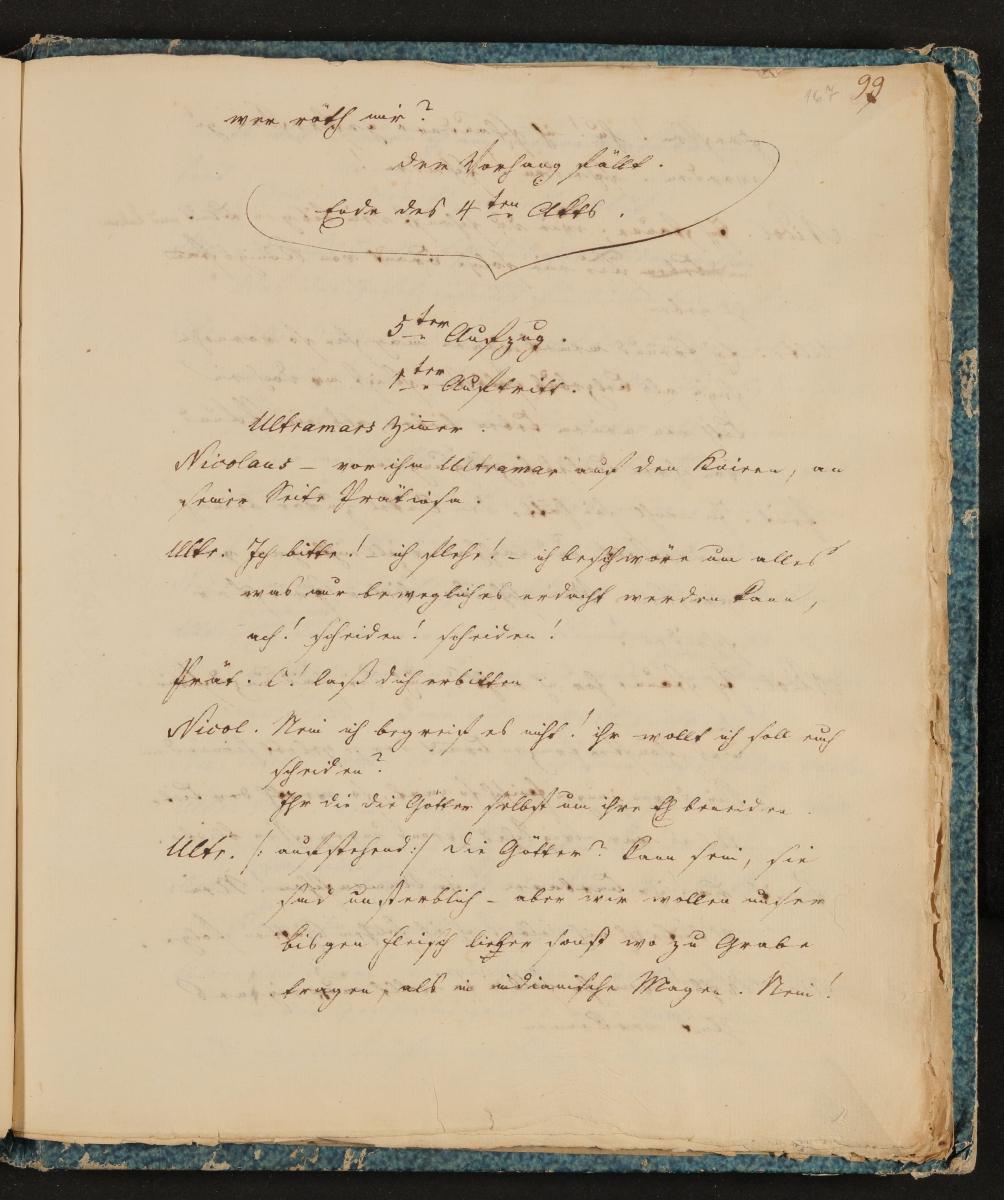 167 99
wer räth mir?
der Vorhang fällt.
Ende des 4ten Akts.
5ter Aufzug.
1ter Auftritt.
Ultramars Zimer.
Nicolaus – vor ihm Ultramar auf den Knieen, an
seiner Seite Prätiosa.
Ultr. Ich bitte! – ich flehe! – ich beschwöre um alles
was nur bewegliches erdacht werden kann,
ach! scheiden! scheiden!
Prät. O! laß dich erbitten
Nicol. Nein ich begreif es nicht! ihr wollt ich soll euch
scheiden?
Ihr die die Götter selbst um ihre Eh beneiden.
Ultr. /: aufstehend :/ Die Götter? kann sein, sie
sind unsterblich – aber wir wollen unser
bisgen Fleisch lieber sonst wo zu Grabe
tragen, als in indianische Magen. Nein!